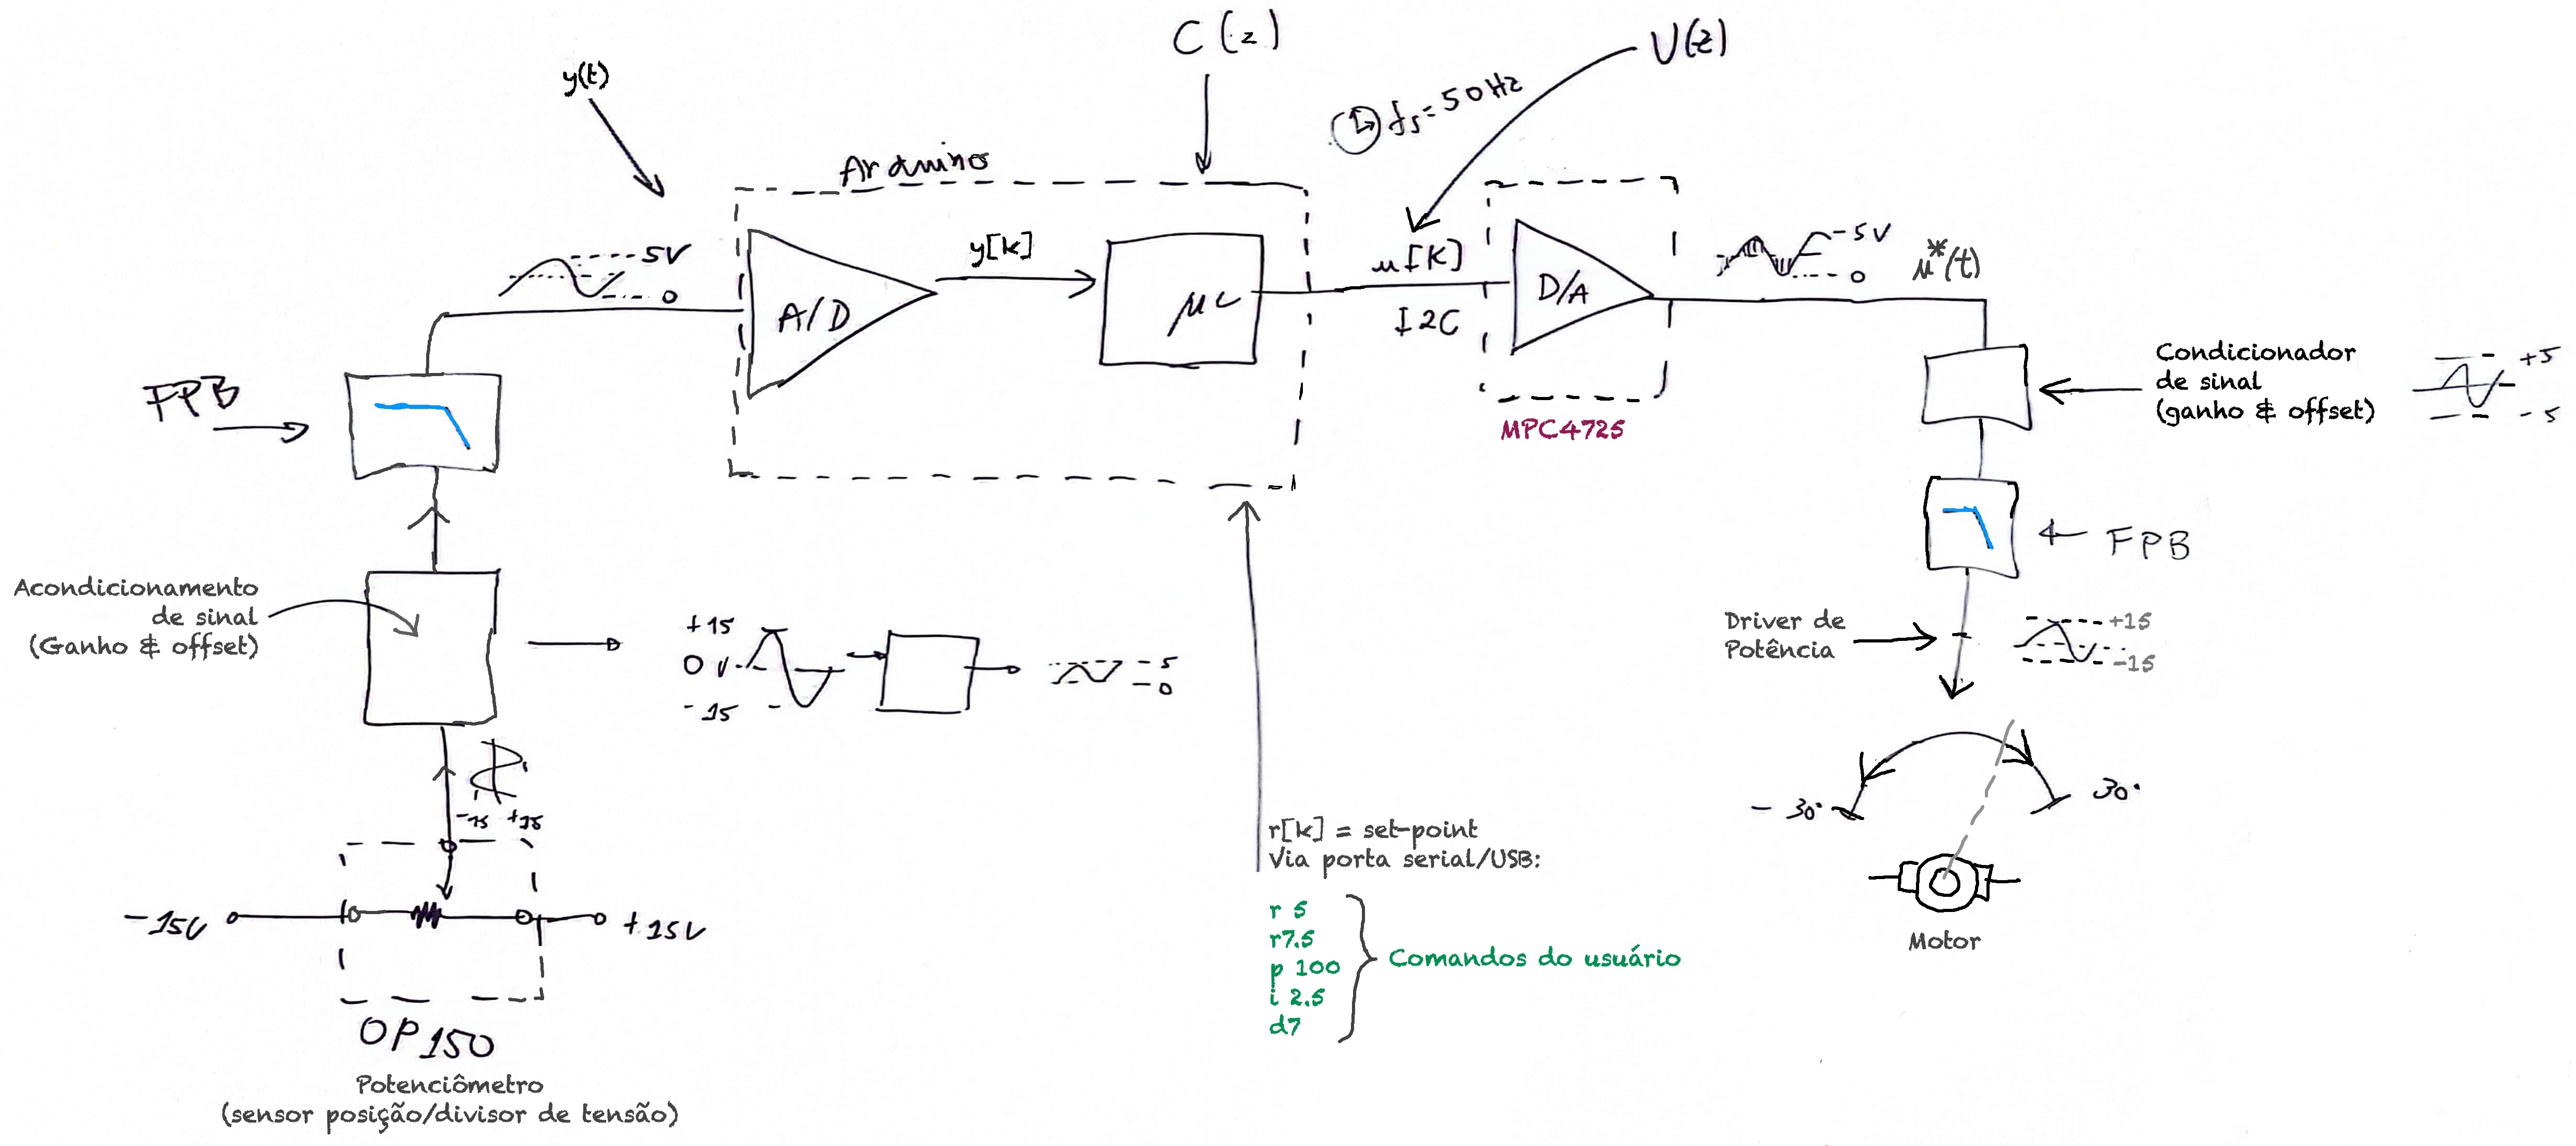 C(z)
U(z)
y(t)
fs=50Hz
Arduino
5V
0
A/D
y[k]
μC
u[k]
I2C
D/A
MPC4725
-5V
0
μ*(t)
Condicionador
de sinal
(ganho & offset)
+5
-5
FPB
FPB
Acondicionamento
de sinal
(Ganho & offset)
+15
0 V
-15
5
0
Driver de
Potência
+15
-15
-15 +15
-30°
30°
Motor
r[k] = set-point
Via porta serial/USB:
r 5
r7.5
p 100
i 2.5
d7
Comandos do usuário
-15V
+15V
OP150
Potenciômetro
(sensor posição/divisor de tensão)